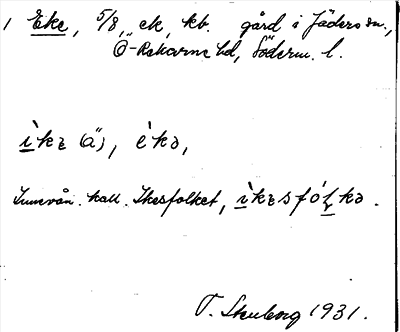 1 Eke, 5/8, ek, kb. gård i Jäders sn.,
Ö-Rekarne hd, Söderm. l.
ìkɛ (ä), èkə,
Innevån. kall. Ikesfolket, ìkɛsfólkə.
T. Skuborg 1931.